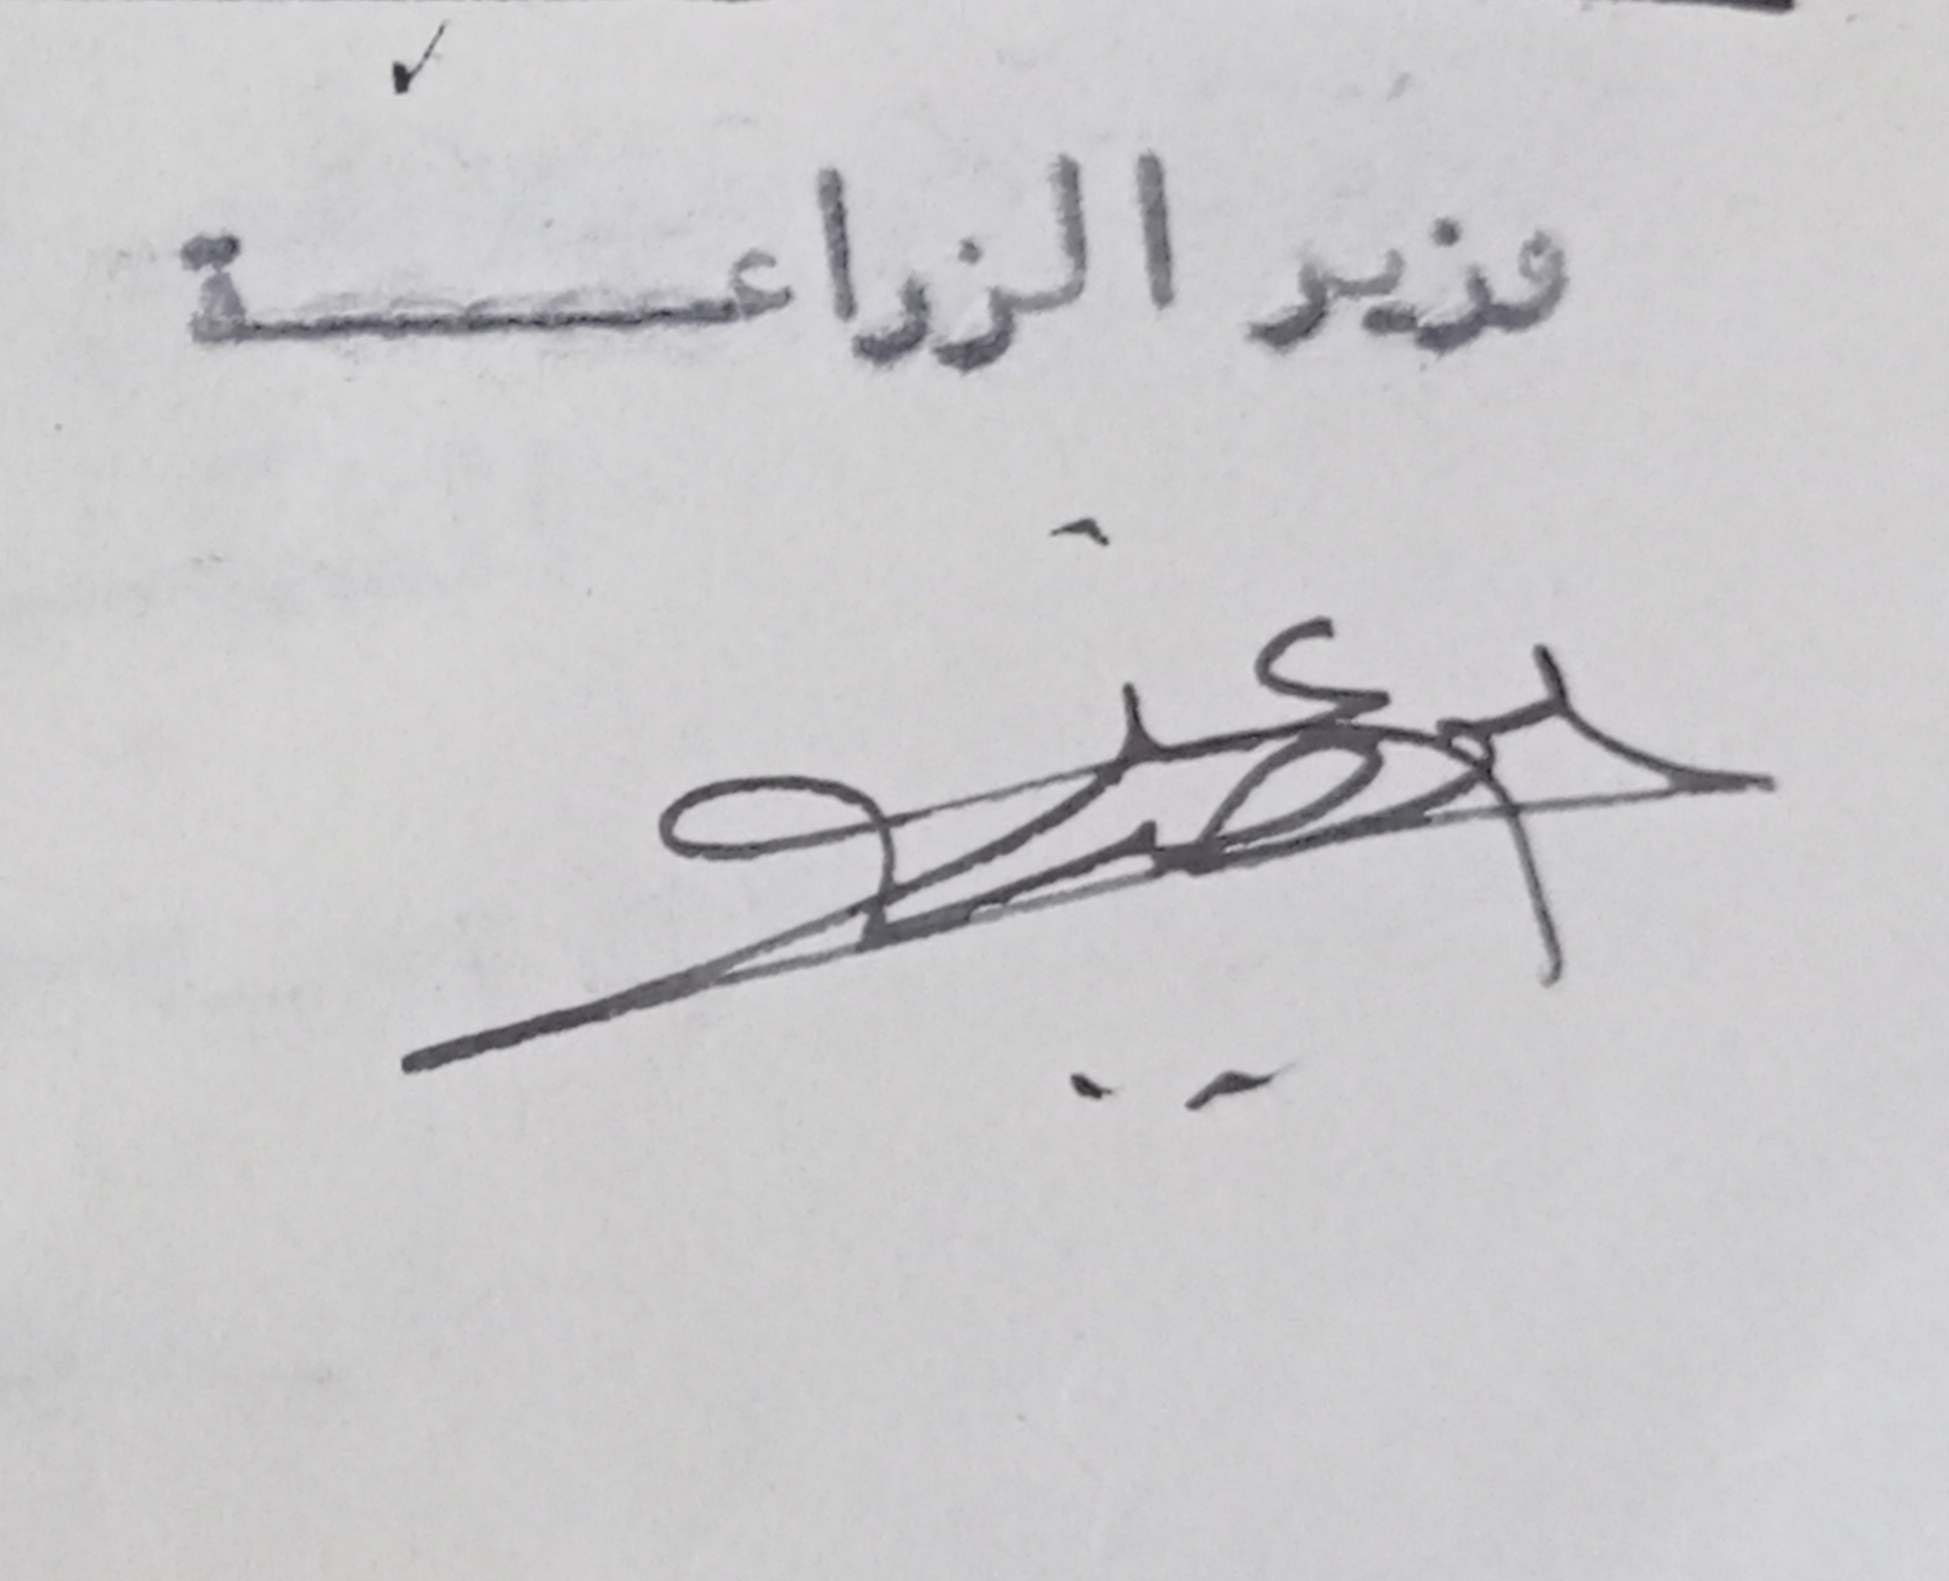 وزير الزراعـــــــة